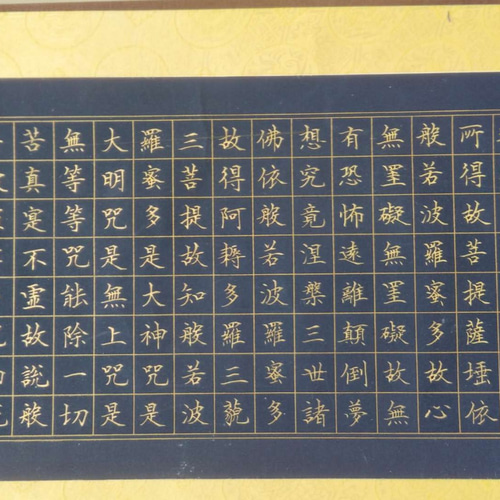 所得故菩提薩埵依
般若波羅蜜多故心
無罣礙無罣礙故無
有恐怖遠離顛倒夢
想究竟涅槃三世諸
佛依般若波羅蜜多
故得阿耨多羅三藐
三菩提故知般若波
羅蜜多是大神咒是
大明咒是無上咒是
無等等咒能除一切
苦真寔不虛故說般